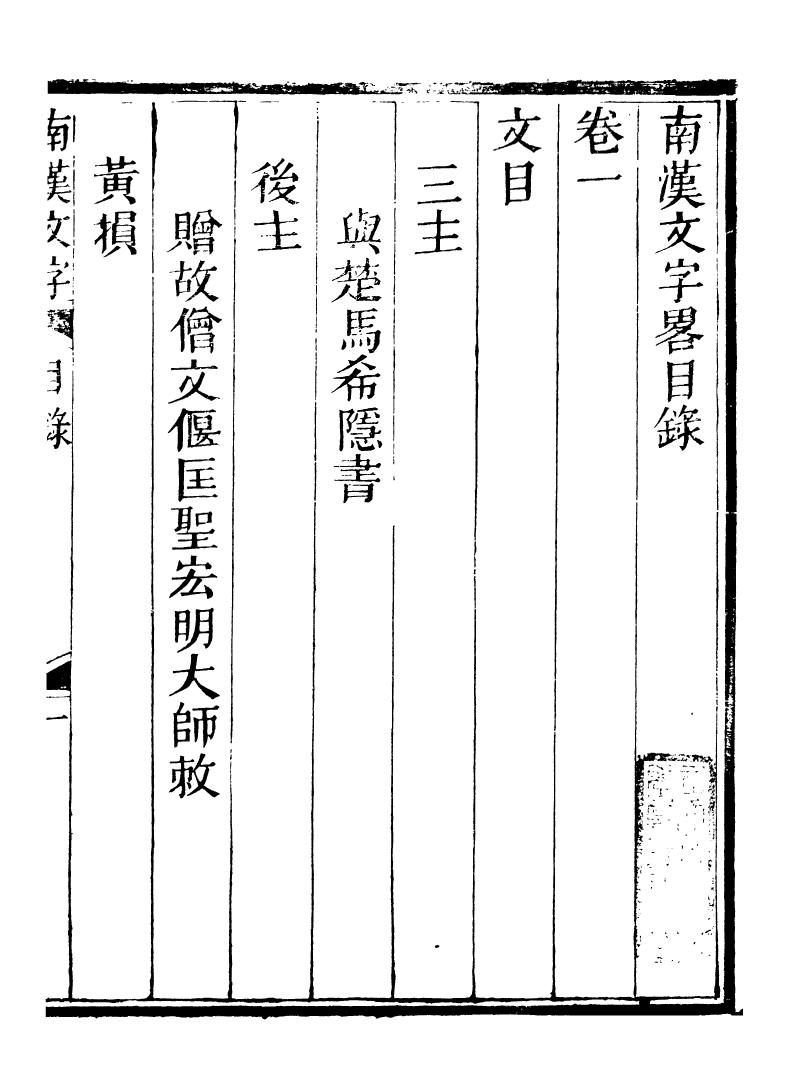 南漢文字畧目錄
卷一
文目
三主
與楚馬希隱書
後主
贈故僧文偃匡聖宏明大師敕
黃損
南漢文字
目錄
一